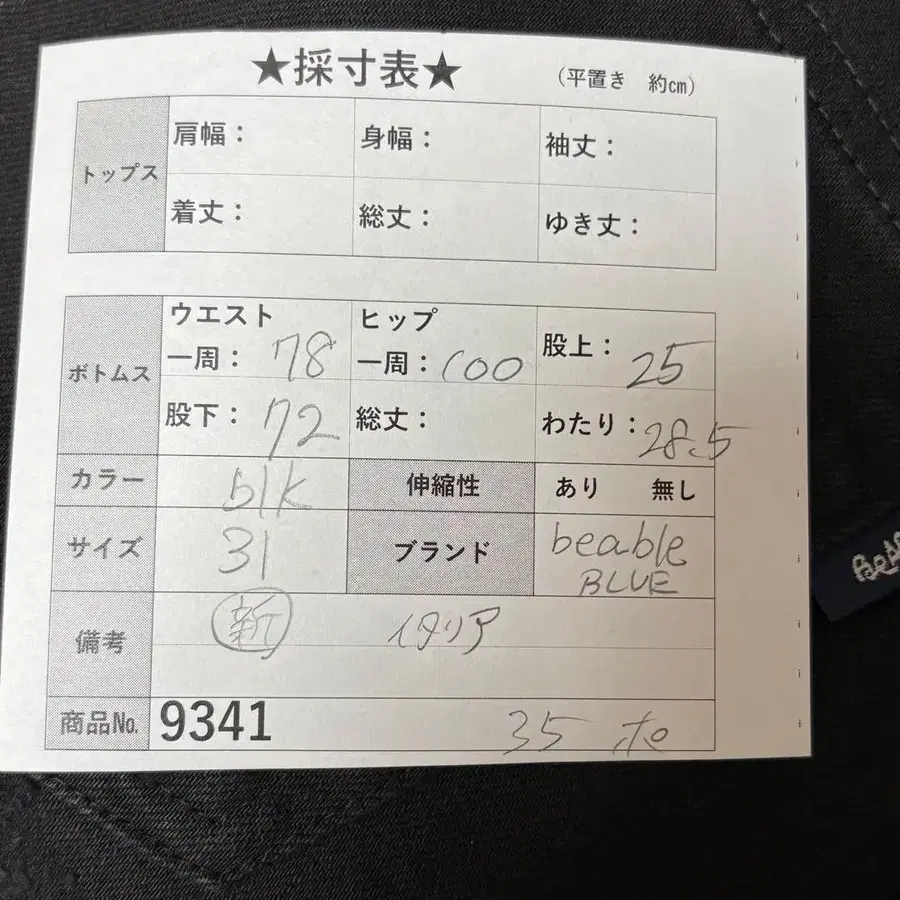 ★採寸表★ (平置き 約cm)
トップス
肩幅: 身幅: 袖丈:
着丈: 総丈: ゆき丈:
ボトムス
ウエスト一周: 78 ヒップ一周: 100 股上: 25
股下: 72 総丈: わたり: 28.5
カラー blk 伸縮性 あり 無し
サイズ 31 ブランド beable BLUE
備考 新 イタリア
商品No. 9341 35 ポ